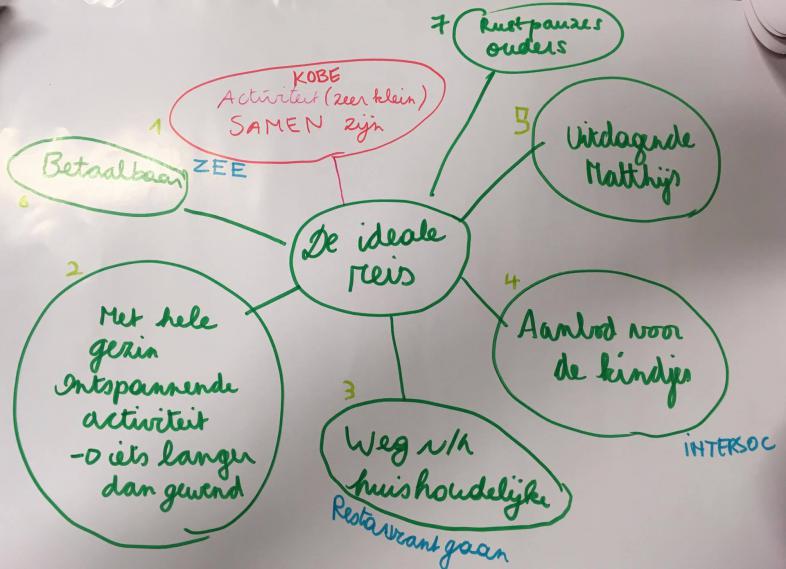 7
Rustpauzes
ouders
1
KOBE
Activiteit (zeer klein)
SAMEN zijn
ZEE
5
Uitdagende
Matthijs
Betaalbaar
6
De ideale
reis
2
Met hele
gezin
Ontspannende
activiteit
→ iets langer
dan gewend
4
Aanbod voor
de kindjes
INTERSOC
3
Weg v/h
huishoudelijke
Restaurant gaan